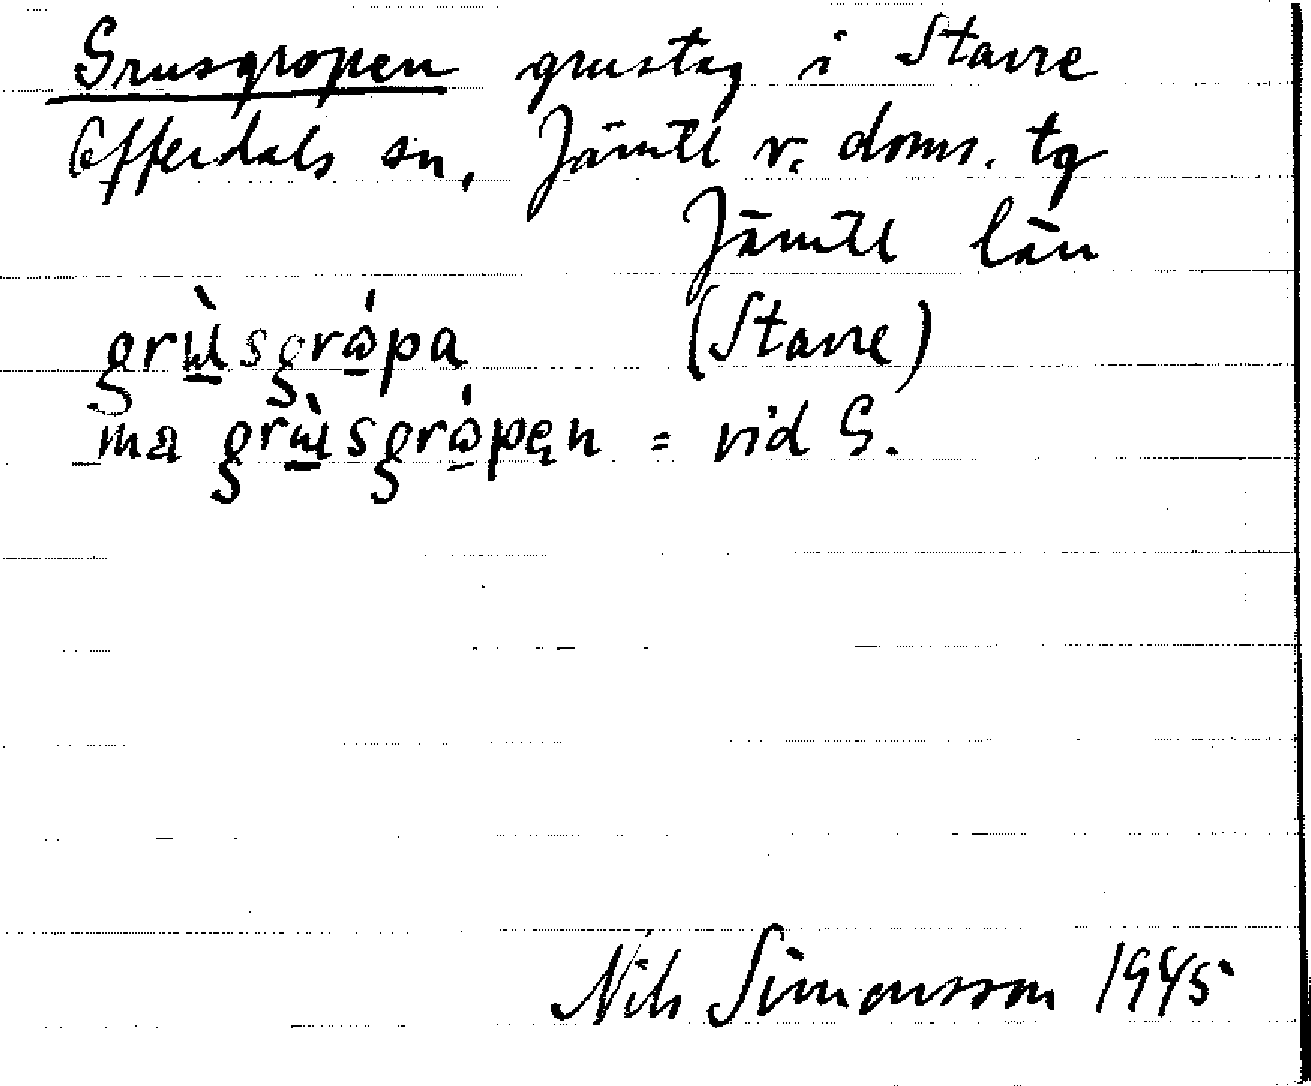 Grusgropen grustag i Stavre
Offerdals sn, Jämtl v. doms. tg
Jämtl län
grɯ̲̀sgrώ̲pa (Stavre)
ma grɯ̲̀sgrώ̲pęn = vid G.
Nils Simonsson 1945